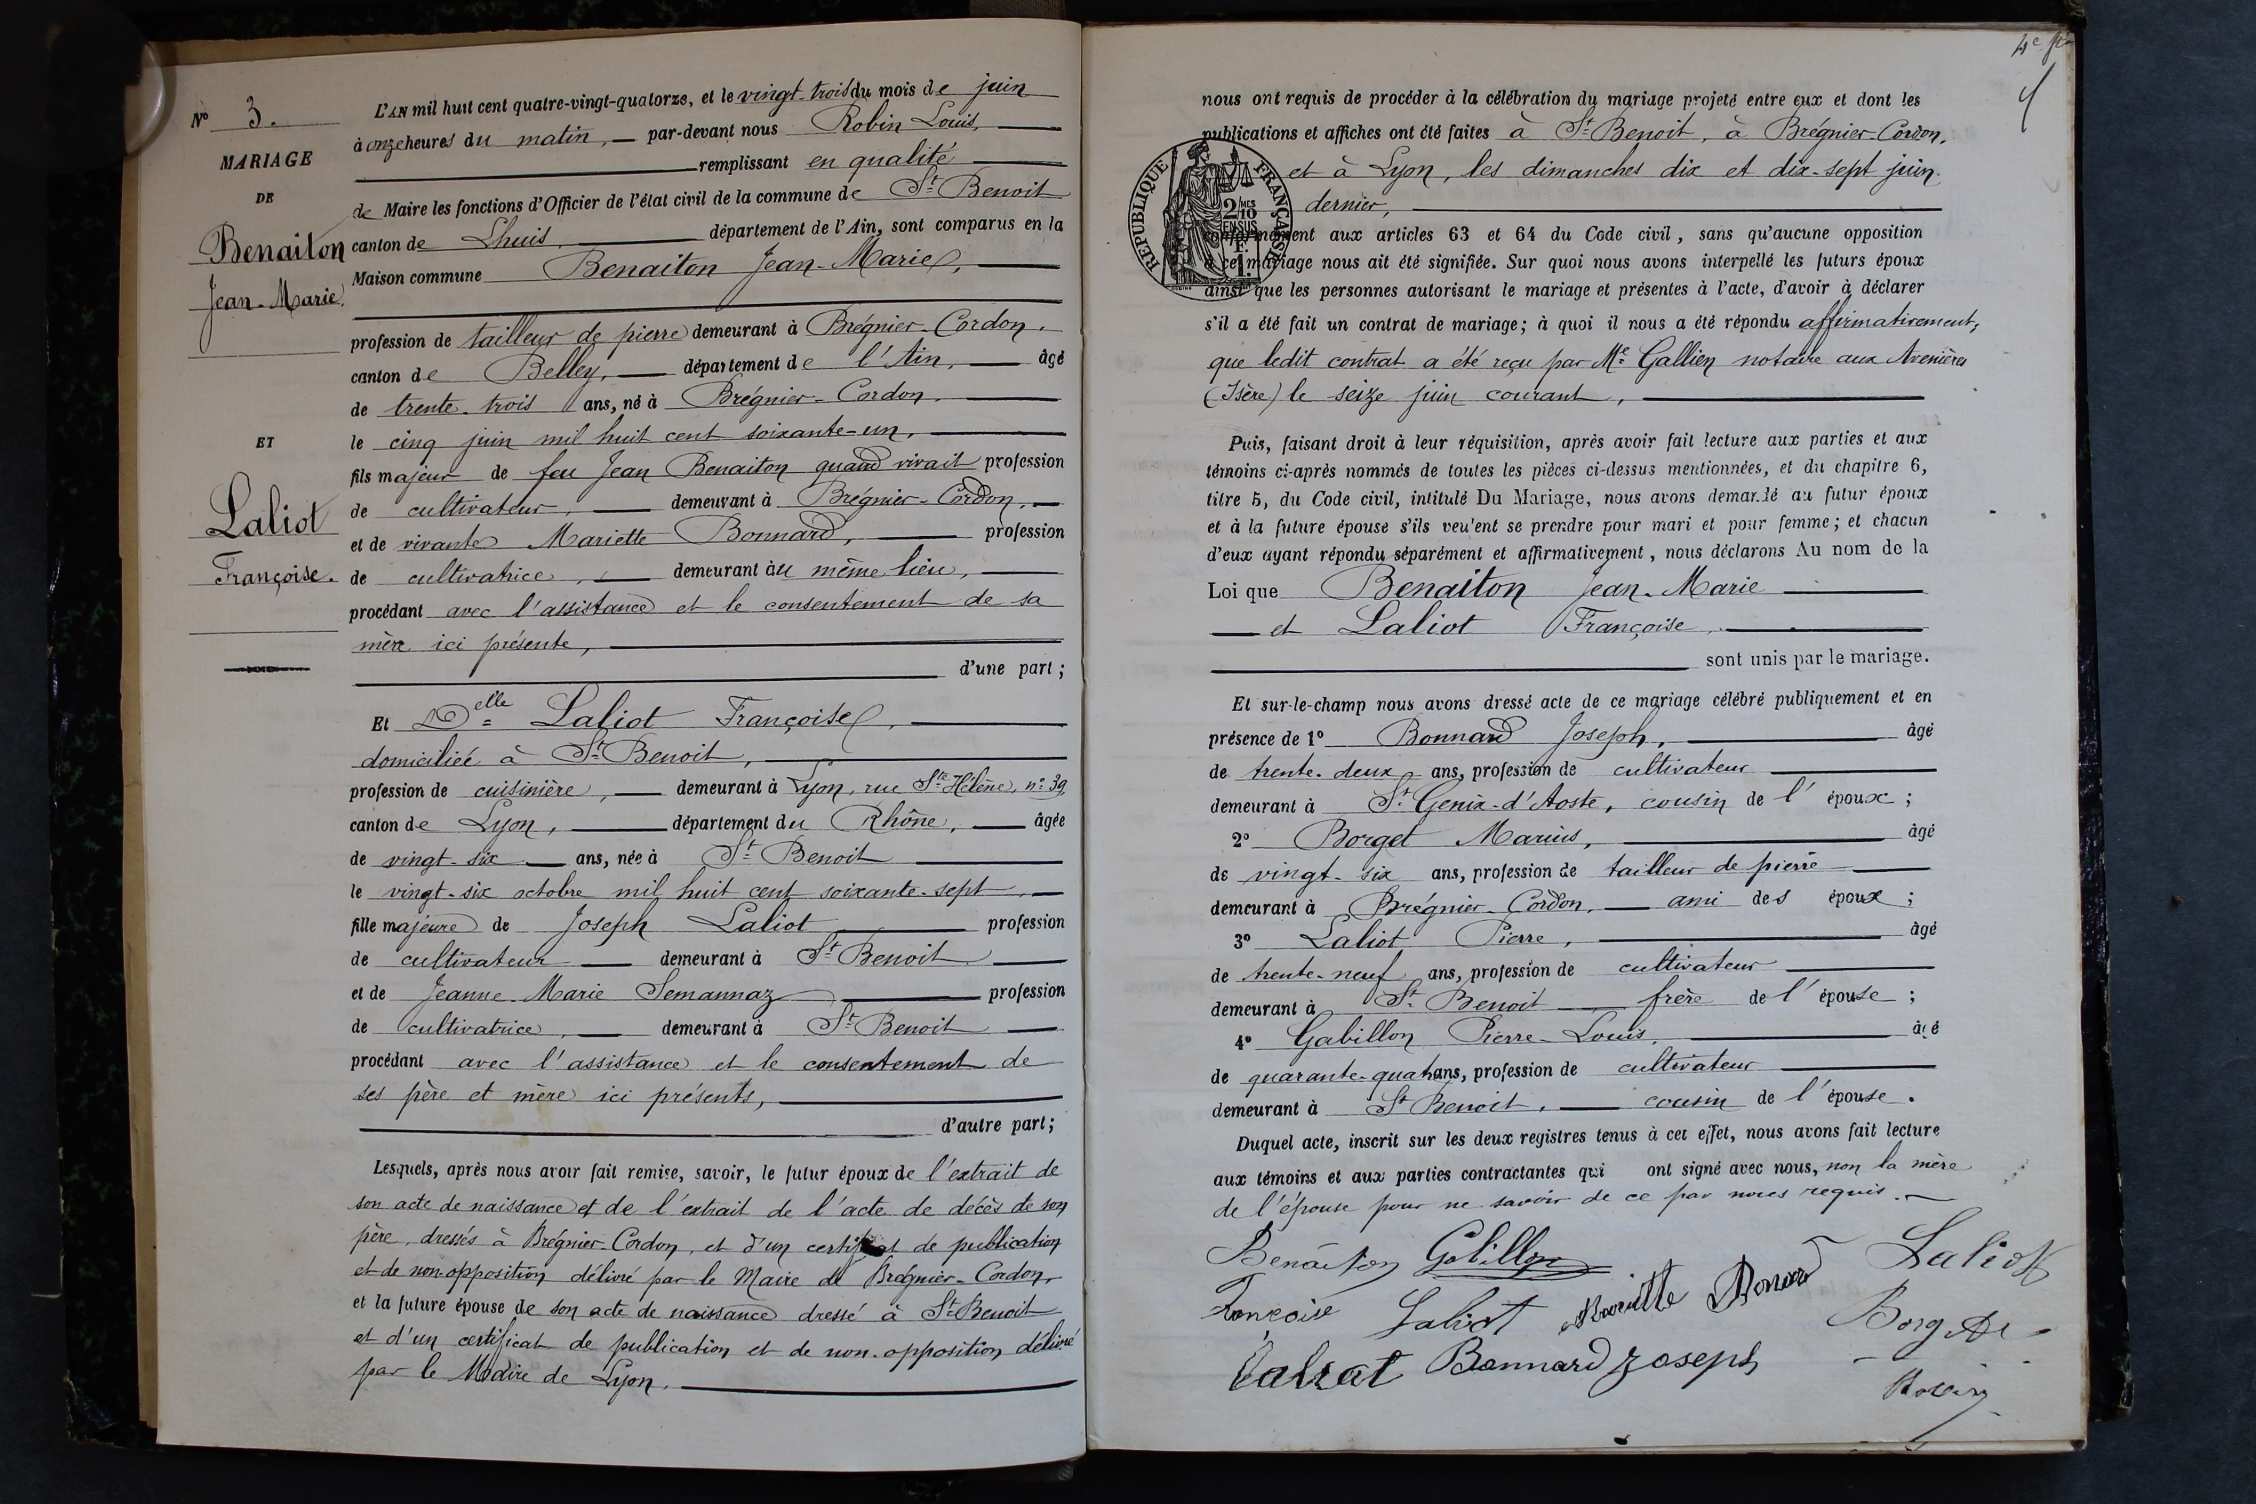 N° 3.
MARIAGE
DE
Benaiton
Jean-Marie.
ET
Laliot
Françoise.
L'AN mil huit cent quatre-vingt-quatorze, et le vingt-trois du mois de juin
à onze heures du matin, par-devant nous Robin Louis,
remplissant en qualité
de Maire les fonctions d'Officier de l'état civil de la commune de St Benoit
canton de Lhuis, département de l'Ain, sont comparus en la
Maison commune Benaiton Jean-Marie,
profession de tailleur de pierre demeurant à Brégnier-Cordon,
canton de Belley, département de l'Ain, âgé
de trente-trois ans, né à Brégnier-Cordon,
le cinq juin mil huit cent soixante-un,
fils majeur de feu Jean Benaiton quand vivait profession
de cultivateur, demeurant à Brégnier-Cordon,
et de vivante Mariette Bonnard, profession
de cultivatrice, demeurant au même lieu,
procédant avec l'assistance et le consentement de sa
mère ici présente,
d'une part;
Et Delle Laliot Françoise,
domiciliée à St Benoit,
profession de cuisinière, demeurant à Lyon, rue Ste Hélène, n° 39,
canton de Lyon, département du Rhône, âgée
de vingt-six ans, née à St Benoit
le vingt-six octobre mil huit cent soixante-sept,
fille majeure de Joseph Laliot profession
de cultivateur demeurant à St Benoit
et de Jeanne-Marie Semannaz profession
de cultivatrice, demeurant à St Benoit
procédant avec l'assistance et le consentement de
ses père et mère ici présents,
d'autre part;
Lesquels, après nous avoir fait remise, savoir, le futur époux de l'extrait de
son acte de naissance et de l'extrait de l'acte de décès de son
père, dressés à Brégnier-Cordon, et d'un certificat de publication
et de non-opposition délivré par le Maire de Brégnier-Cordon,
et la future épouse de son acte de naissance dressé à St Benoit
et d'un certificat de publication et de non-opposition délivré
par le Maire de Lyon.
4e
nous ont requis de procéder à la célébration du mariage projeté entre eux et dont les
publications et affiches ont été faites à St Benoit, à Brégnier-Cordon,
et à Lyon, les dimanches dix et dix-sept juin
dernier,
RÉPUBLIQUE FRANÇAISE
2/10 MES
EN SUS
1 F.
conformément aux articles 63 et 64 du Code civil, sans qu'aucune opposition
à ce mariage nous ait été signifiée. Sur quoi nous avons interpellé les futurs époux
ainsi que les personnes autorisant le mariage et présentes à l'acte, d'avoir à déclarer
s'il a été fait un contrat de mariage; à quoi il nous a été répondu affirmativement,
que ledit contrat a été reçu par Me Gallien notaire aux Avenières
(Isère) le seize juin courant,
Puis, faisant droit à leur réquisition, après avoir fait lecture aux parties et aux
témoins ci-après nommés de toutes les pièces ci-dessus mentionnées, et du chapitre 6,
titre 5, du Code civil, intitulé Du Mariage, nous avons demandé au futur époux
et à la future épouse s'ils veulent se prendre pour mari et pour femme; et chacun
d'eux ayant répondu séparément et affirmativement, nous déclarons Au nom de la
Loi que Benaiton Jean-Marie
et Laliot Françoise,
sont unis par le mariage.
Et sur-le-champ nous avons dressé acte de ce mariage célébré publiquement et en
présence de 1° Bonnard Joseph, âgé
de trente-deux ans, profession de cultivateur
demeurant à St Genix-d'Aoste, cousin de l'époux;
2° Borget Marius, âgé
de vingt-six ans, profession de tailleur de pierre
demeurant à Brégnier-Cordon, ami des époux;
3° Laliot Pierre, âgé
de trente-neuf ans, profession de cultivateur
demeurant à St Benoit frère de l'épouse;
4° Gabillon Pierre-Louis, âgé
de quarante-quatre ans, profession de cultivateur
demeurant à St Benoit, cousin de l'épouse.
Duquel acte, inscrit sur les deux registres tenus à cet effet, nous avons fait lecture
aux témoins et aux parties contractantes qui ont signé avec nous, non la mère
de l'épouse pour ne savoir de ce par nous requis.
Benaiton Gabillon Laliot
Françoise Laliot Mariette Bonard Borget
Laliot Bonnard Joseph
Robin